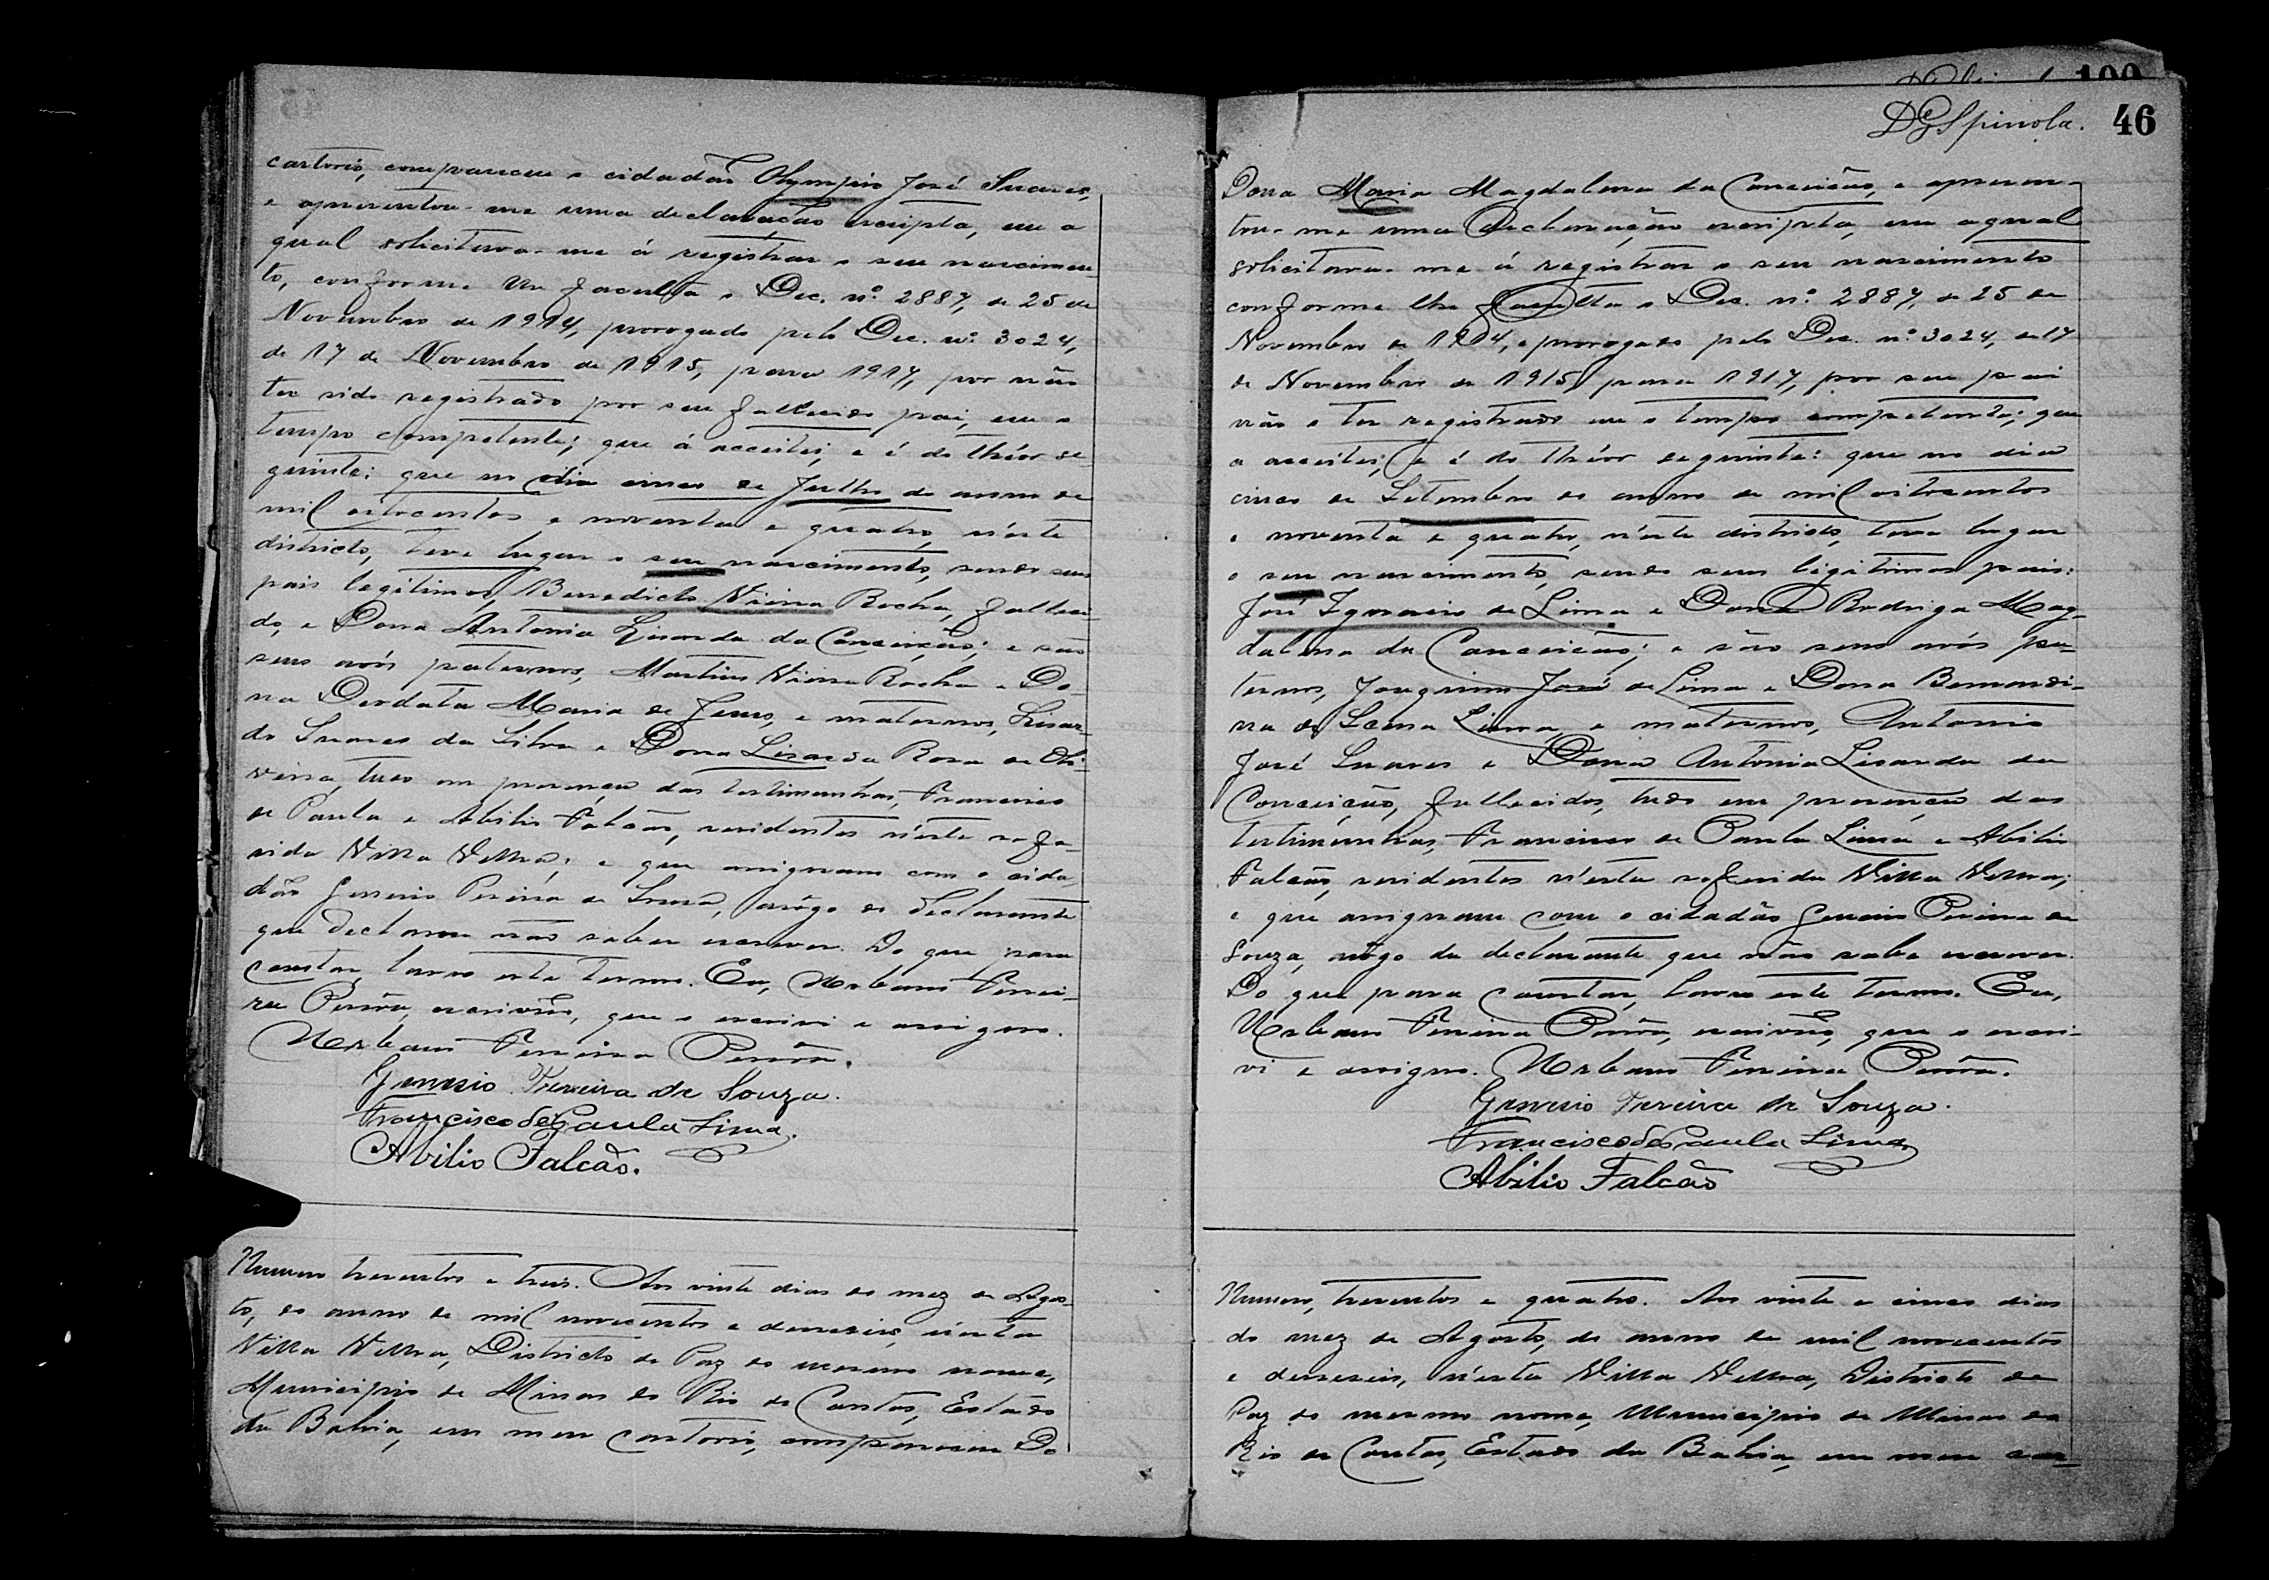 cartorio, compareceu o cidadão Olympio José Suares,
e apresentou-me uma declaração escripta, em a
qual solicitava-me á registrar o seu nascimen-
to, conforme lhe faculta o Dec. nº. 2887, de 25 de
Novembro de 1914, prorogado pelo Dec. nº. 3024,
de 17 de Novembro de 1915, para 1917, por não
ter sido registrado por seu fallecido pai, em o
tempo competente; que á acceitei, e é do théor se-
guinte: que no dia cinco de Julho do anno de
mil oitocentos e noventa e quatro, n'este
districto, teve lugar o seu nascimento, sendo seus
pais legitimos, Benedicto Vieira Rocha, falleci-
do, e Dona Antonia Lisarda da Conceição; e são
seus avós paternos, Martins Vieira Rocha e Do-
na Deodata Maria de Jesus, e maternos, Lisar-
do Suares da Silva e Dona Lisarda Rosa de Oli-
veira, tudo em presença das testimunhas, Francisco
de Paula e Abilio Falcão, residentes n'esta refe-
rida Villa Velha; e que assignam com o cida-
dão Genesio Pereira de Souza, arôgo do declarante
que declarou não saber escrever. Do que para
constar, lavro este termo. Eu, Urbano Ferrei-
ra Perôra, escrivão, que o escrivi e assigno.
Urbano Ferreira
Genesio Pereira de Souza.
Francisco de Paula Lima.
Abilio Falcão.
Numero trezentos e treis. Aos vinte dias do mez de Agos-
to, do anno de mil novecentos e deseseis, n'esta
Villa Velha, Districto de Paz do mesmo nome,
Municipio de Minas do Rio de Contas, Estado
da Bahia, em meu cartorio, compareceu Do
DG Spinola. 46
Dona Maria Magdalena da Conceição, e apresen-
tou-me uma declaração escripta, em a qual
solicitava-me á registrar o seu nascimento
conforme lhe faculta o Dec. nº. 2887, de 25 de
Novembro de 1914, e prorogado pelo Dec. nº. 3024, de 17
de Novembro de 1915, para 1917, por seu pai
não o ter registrado em o tempo competente; que
a acceitei, e é do théor seguinte: que no dia
cinco de Setembro do anno de mil oitocentos
e noventa e quatro, n'este districto, teve lugar
o seu nascimento, sendo seus legitimos pais:
José Ignacio de Lima e Dona Rodriga Mag-
dalena da Conceição; e são seus avós pa-
ternos, Joaquim José de Lima e Dona Bernardi-
na de Lima, e maternos, Antonio
José Suares e Dona Antonia Lisarda da
Conceição, fallecidos, tudo em presença das
testimunhas, Francisco de Paula Lima e Abilio
Falcão, residentes n'esta referida Villa Velha;
e que assignam com o cidadão Genesio Pereira de
Souza, arôgo da declarante que não sabe escrever.
Do que para constar, lavro este termo. Eu,
Urbano Ferreira Perôra, escrivão, que o escri-
vi e assigno. Urbano Ferreira
Genesio Pereira de Souza.
Francisco de Paula Lima
Abilio Falcão
Numero, trezentos e quatro. Aos vinte e cinco dias
do mez de Agosto, do anno de mil novecentos
e deseseis, n'esta Villa Velha, Districto de
Paz do mesmo nome, Municipio de Minas do
Rio de Contas, Estado da Bahia, em meu car-